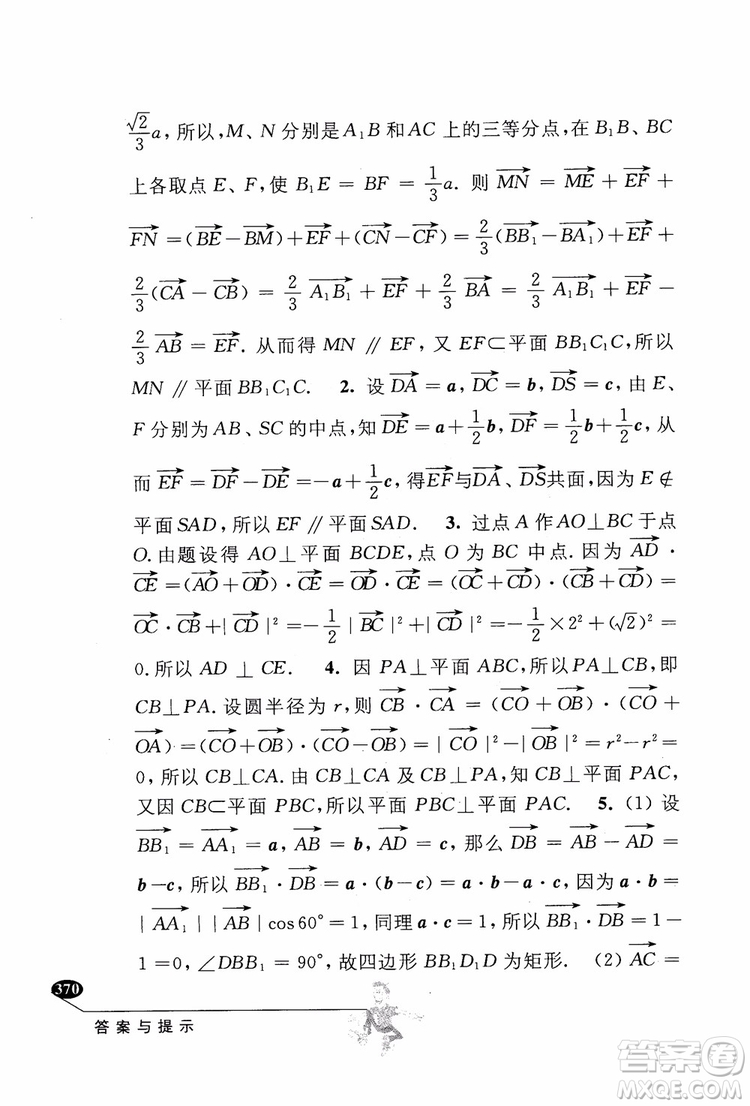 $\frac{\sqrt{2}}{3}a$，所以，M、N 分别是 $A_1B$ 和 AC 上的三等分点，在 $B_1B$、BC
上各取点 E、F，使 $B_1E = BF = \frac{1}{3}a$．则 $\overrightarrow{MN} = \overrightarrow{ME} + \overrightarrow{EF} +$
$\overrightarrow{FN} = (\overrightarrow{BE} - \overrightarrow{BM}) + \overrightarrow{EF} + (\overrightarrow{CN} - \overrightarrow{CF}) = \frac{2}{3}(\overrightarrow{BB_1} - \overrightarrow{BA_1}) + \overrightarrow{EF} +$
$\frac{2}{3}(\overrightarrow{CA} - \overrightarrow{CB}) = \frac{2}{3}\overrightarrow{A_1B_1} + \overrightarrow{EF} + \frac{2}{3}\overrightarrow{BA} = \frac{2}{3}\overrightarrow{A_1B_1} + \overrightarrow{EF} -$
$\frac{2}{3}\overrightarrow{AB} = \overrightarrow{EF}$．从而得 MN ∥ EF，又 EF⊂平面 $BB_1C_1C$，所以
MN ∥ 平面 $BB_1C_1C$． 2. 设 $\overrightarrow{DA} = a$，$\overrightarrow{DC} = b$，$\overrightarrow{DS} = c$，由 E、
F 分别为 AB、SC 的中点，知 $\overrightarrow{DE} = a + \frac{1}{2}b$，$\overrightarrow{DF} = \frac{1}{2}b + \frac{1}{2}c$，从
而 $\overrightarrow{EF} = \overrightarrow{DF} - \overrightarrow{DE} = -a + \frac{1}{2}c$，得$\overrightarrow{EF}$与$\overrightarrow{DA}$、$\overrightarrow{DS}$共面，因为 E ∉
平面 SAD，所以 EF ∥ 平面 SAD． 3. 过点 A 作 AO⊥BC 于点
O．由题设得 AO⊥平面 BCDE，点 O 为 BC 中点．因为 $\overrightarrow{AD} \cdot$
$\overrightarrow{CE} = (\overrightarrow{AO} + \overrightarrow{OD}) \cdot \overrightarrow{CE} = \overrightarrow{OD} \cdot \overrightarrow{CE} = (\overrightarrow{OC} + \overrightarrow{CD}) \cdot (\overrightarrow{CB} + \overrightarrow{CD}) =$
$\overrightarrow{OC} \cdot \overrightarrow{CB} + |\overrightarrow{CD}|^2 = -\frac{1}{2}|\overrightarrow{BC}|^2 + |\overrightarrow{CD}|^2 = -\frac{1}{2} \times 2^2 + (\sqrt{2})^2 =$
0．所以 AD ⊥ CE． 4. 因 PA⊥平面 ABC，所以 PA⊥CB，即
CB⊥PA．设圆半径为 r，则 $\overrightarrow{CB} \cdot \overrightarrow{CA} = (\overrightarrow{CO} + \overrightarrow{OB}) \cdot (\overrightarrow{CO} +$
$\overrightarrow{OA}) = (\overrightarrow{CO} + \overrightarrow{OB}) \cdot (\overrightarrow{CO} - \overrightarrow{OB}) = |\overrightarrow{CO}|^2 - |\overrightarrow{OB}|^2 = r^2 - r^2 =$
0，所以 CB⊥CA．由 CB⊥CA 及 CB⊥PA，知 CB⊥平面 PAC，
又因 CB⊂平面 PBC，所以平面 PBC⊥平面 PAC． 5. (1) 设
$\overrightarrow{BB_1} = \overrightarrow{AA_1} = a$，$\overrightarrow{AB} = b$，$\overrightarrow{AD} = c$，那么 $\overrightarrow{DB} = \overrightarrow{AB} - \overrightarrow{AD} =$
$b - c$，所以 $\overrightarrow{BB_1} \cdot \overrightarrow{DB} = a \cdot (b - c) = a \cdot b - a \cdot c$．因为 $a \cdot b =$
$|\overrightarrow{AA_1}||\overrightarrow{AB}|\cos 60° = 1$，同理 $a \cdot c = 1$，所以 $\overrightarrow{BB_1} \cdot \overrightarrow{DB} = 1 -$
1 = 0，∠$DBB_1$ = 90°，故四边形 $BB_1D_1D$ 为矩形． (2) $\overrightarrow{AC} =$
370
答案与提示
答案圈
MXQE.COM